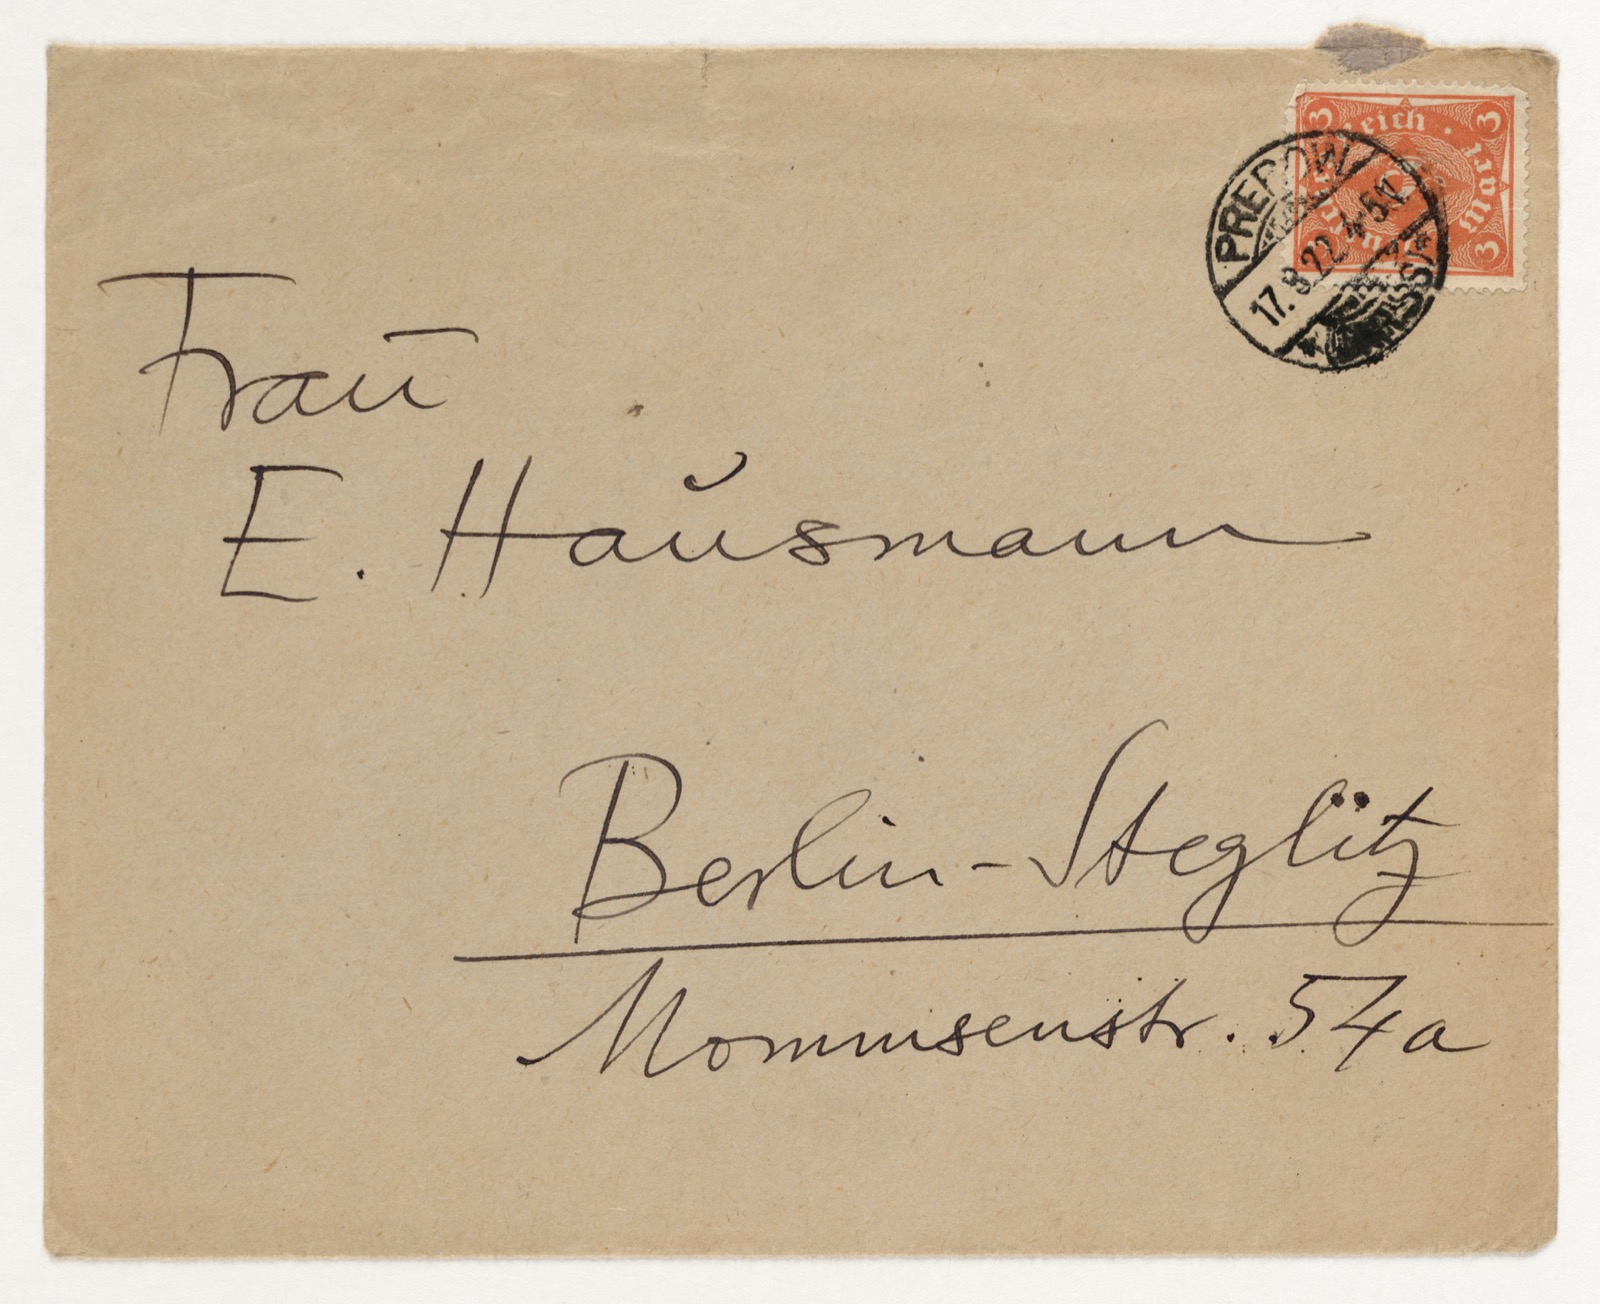 3 3
Reich
Mark
3
PREROW
17.8.22. 4-5N
Frau
E. Hausmann
Berlin-Steglitz
Mommsenstr. 54a